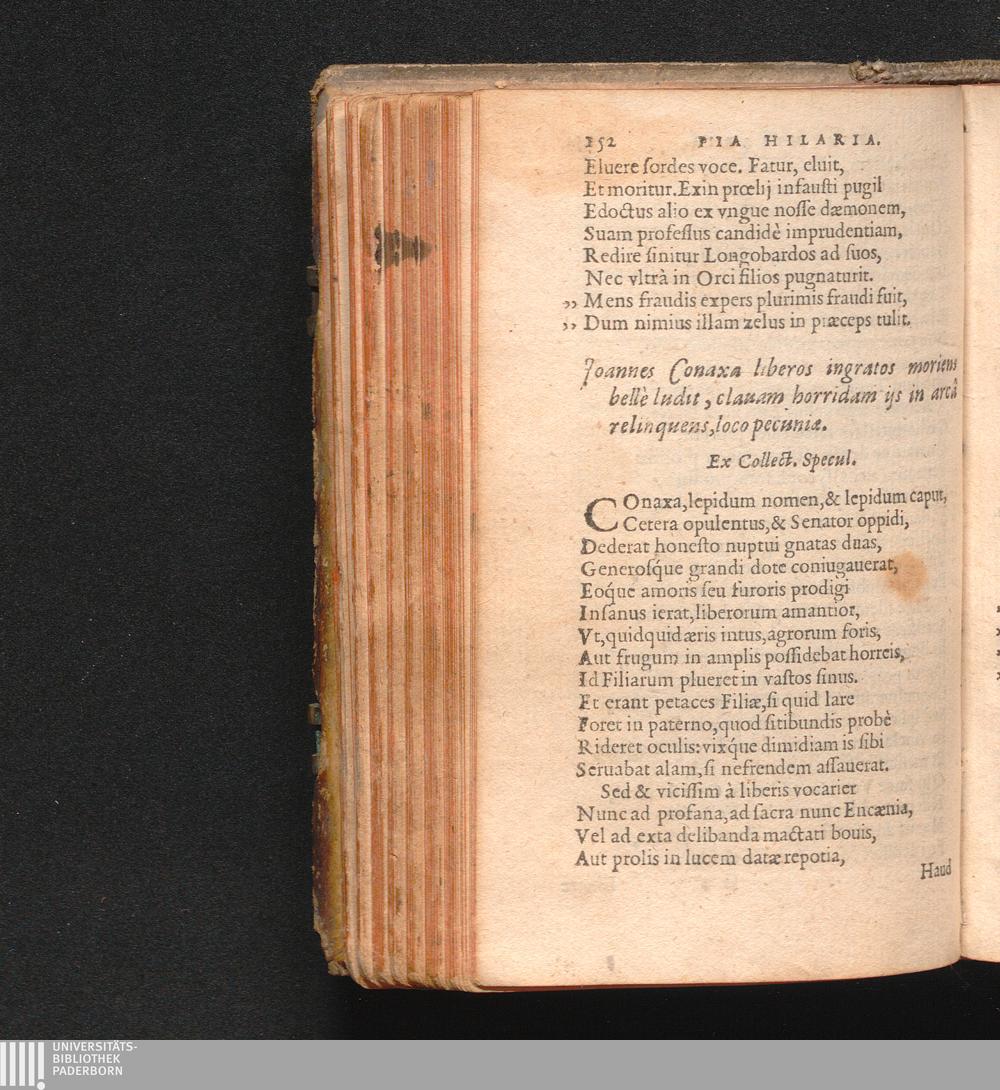 152 PIA HILARIA.
Eluere ſordes voce. Fatur, eluit,
Et moritur. Exin prœlij infauſti pugil
Edoctus alio ex vngue noſſe dæmonem,
Suam profeſſus candidè imprudentiam,
Redire ſinitur Longobardos ad ſuos,
Nec vltrà in Orci filios pugnaturit.
„ Mens fraudis expers plurimis fraudi fuit,
„ Dum nimius illam zelus in præceps tulit.
Joannes Conaxa liberos ingratos moriens
bellè ludit, clauam horridam ijs in arcâ
relinquens, loco pecuniæ.
Ex Collect. Specul.
COnaxa, lepidum nomen, & lepidum caput,
Cetera opulentus, & Senator oppidi,
Dederat honeſto nuptui gnatas duas,
Generoſq́ue grandi dote coniugauerat,
Eoq́ue amoris ſeu furoris prodigi
Inſanus ierat, liberorum amantior,
Vt, quidquid æris intus, agrorum foris,
Aut frugum in amplis poſſidebat horreis,
Id Filiarum plueret in vaſtos ſinus.
Et erant petaces Filiæ, ſi quid lare
Foret in paterno, quod ſitibundis probè
Rideret oculis: vixq́ue dimidiam is ſibi
Seruabat alam, ſi nefrendem aſſauerat.
Sed & viciſſim à liberis vocarier
Nunc ad profana, ad ſacra nunc Encænia,
Vel ad exta delibanda mactati bouis,
Aut prolis in lucem datæ repotia,
Haud
UNIVERSITÄTS-
BIBLIOTHEK
PADERBORN